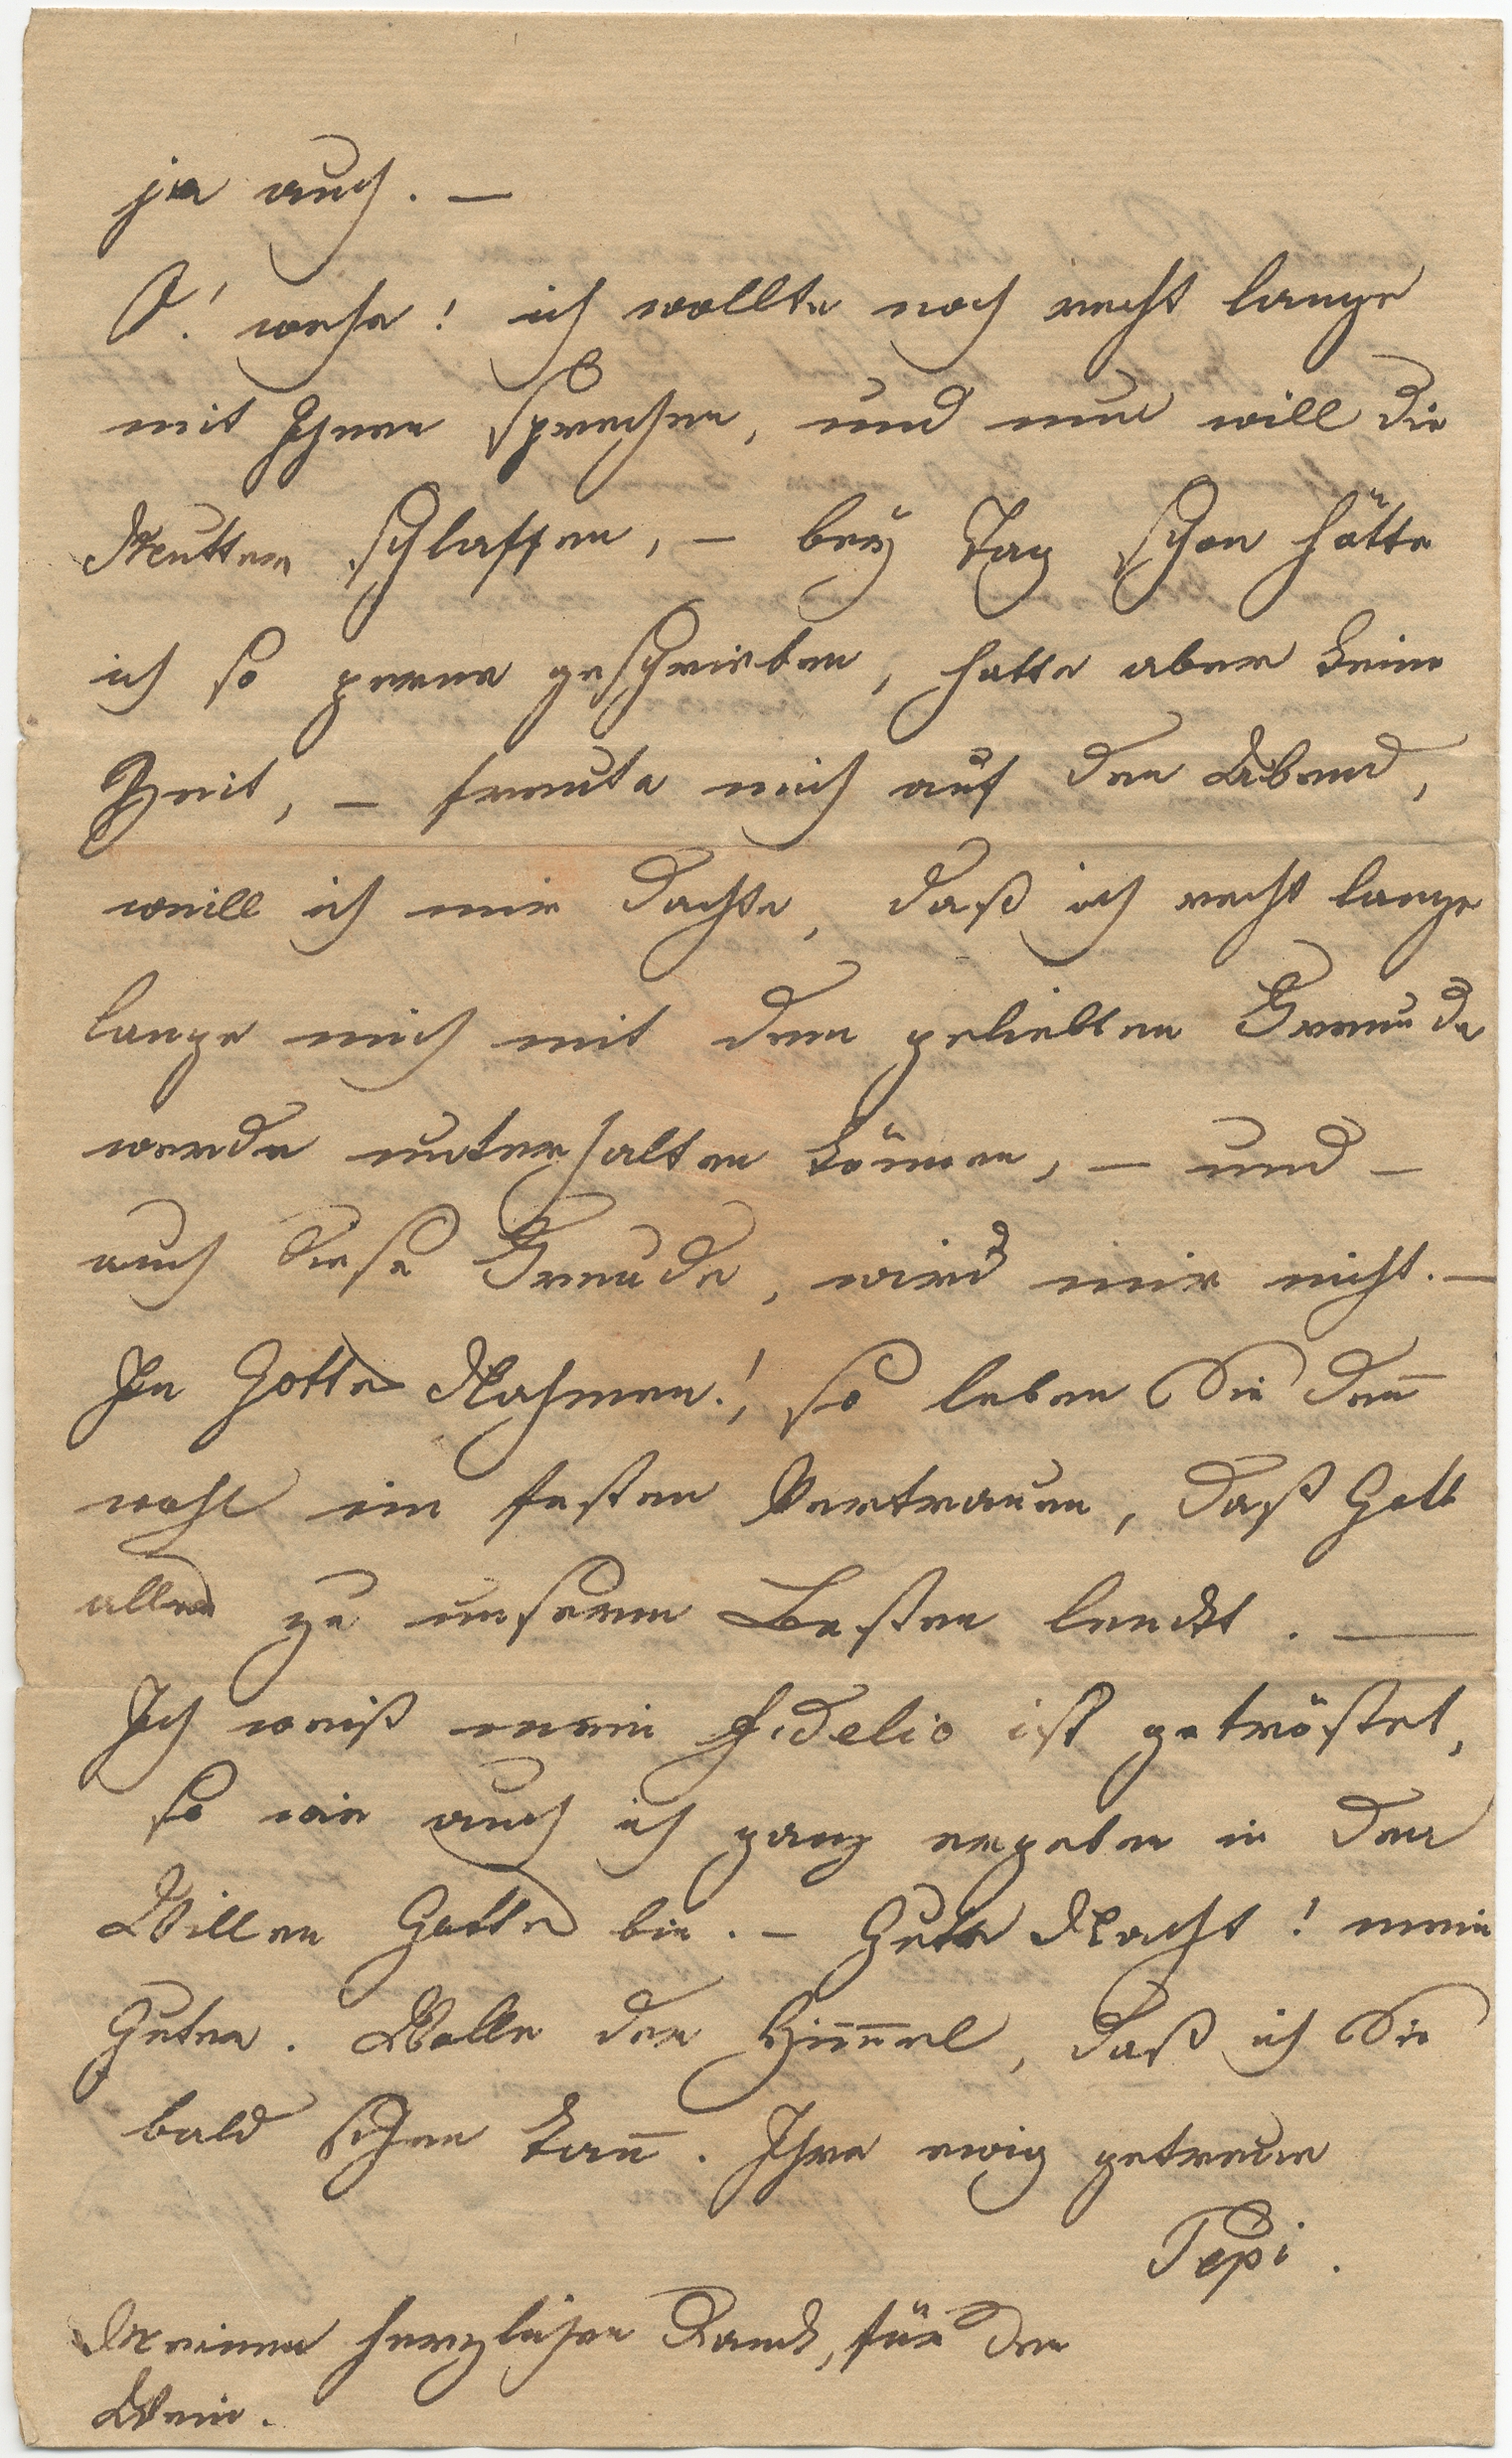 ja auch. —
O! wehe! ich wollte noch recht lange
mit Ihnen sprechen, und nun will die
Mutter schlaffen, – beÿ Tag schon hätte
ich so gerne geschrieben, hatte aber keine
Zeit, – freute mich auf den Abend,
weill ich mir dachte, daß ich recht lange
lange mich mit dem geliebten Freunde
werde unterhalten können, – und –
auch diese Freude, wird mir nicht. –
In Gottes Nahmen!, so leben Sie den̅
wohl im festen Vertrauen, daß Gott
alles zu unserem Besten lenckt. —
Ich weiß mein Fidelio ist getröstet,
so wie auch ich ganz ergeben in den
Willen Gottes bin. – Gute Nacht! mein
Guter. Wolle der Him̅el, daß ich Sie
bald sehen kan̅. Ihre ewig getreue
Pepi.
Meinen herzlichen Danck, für den
Wein.